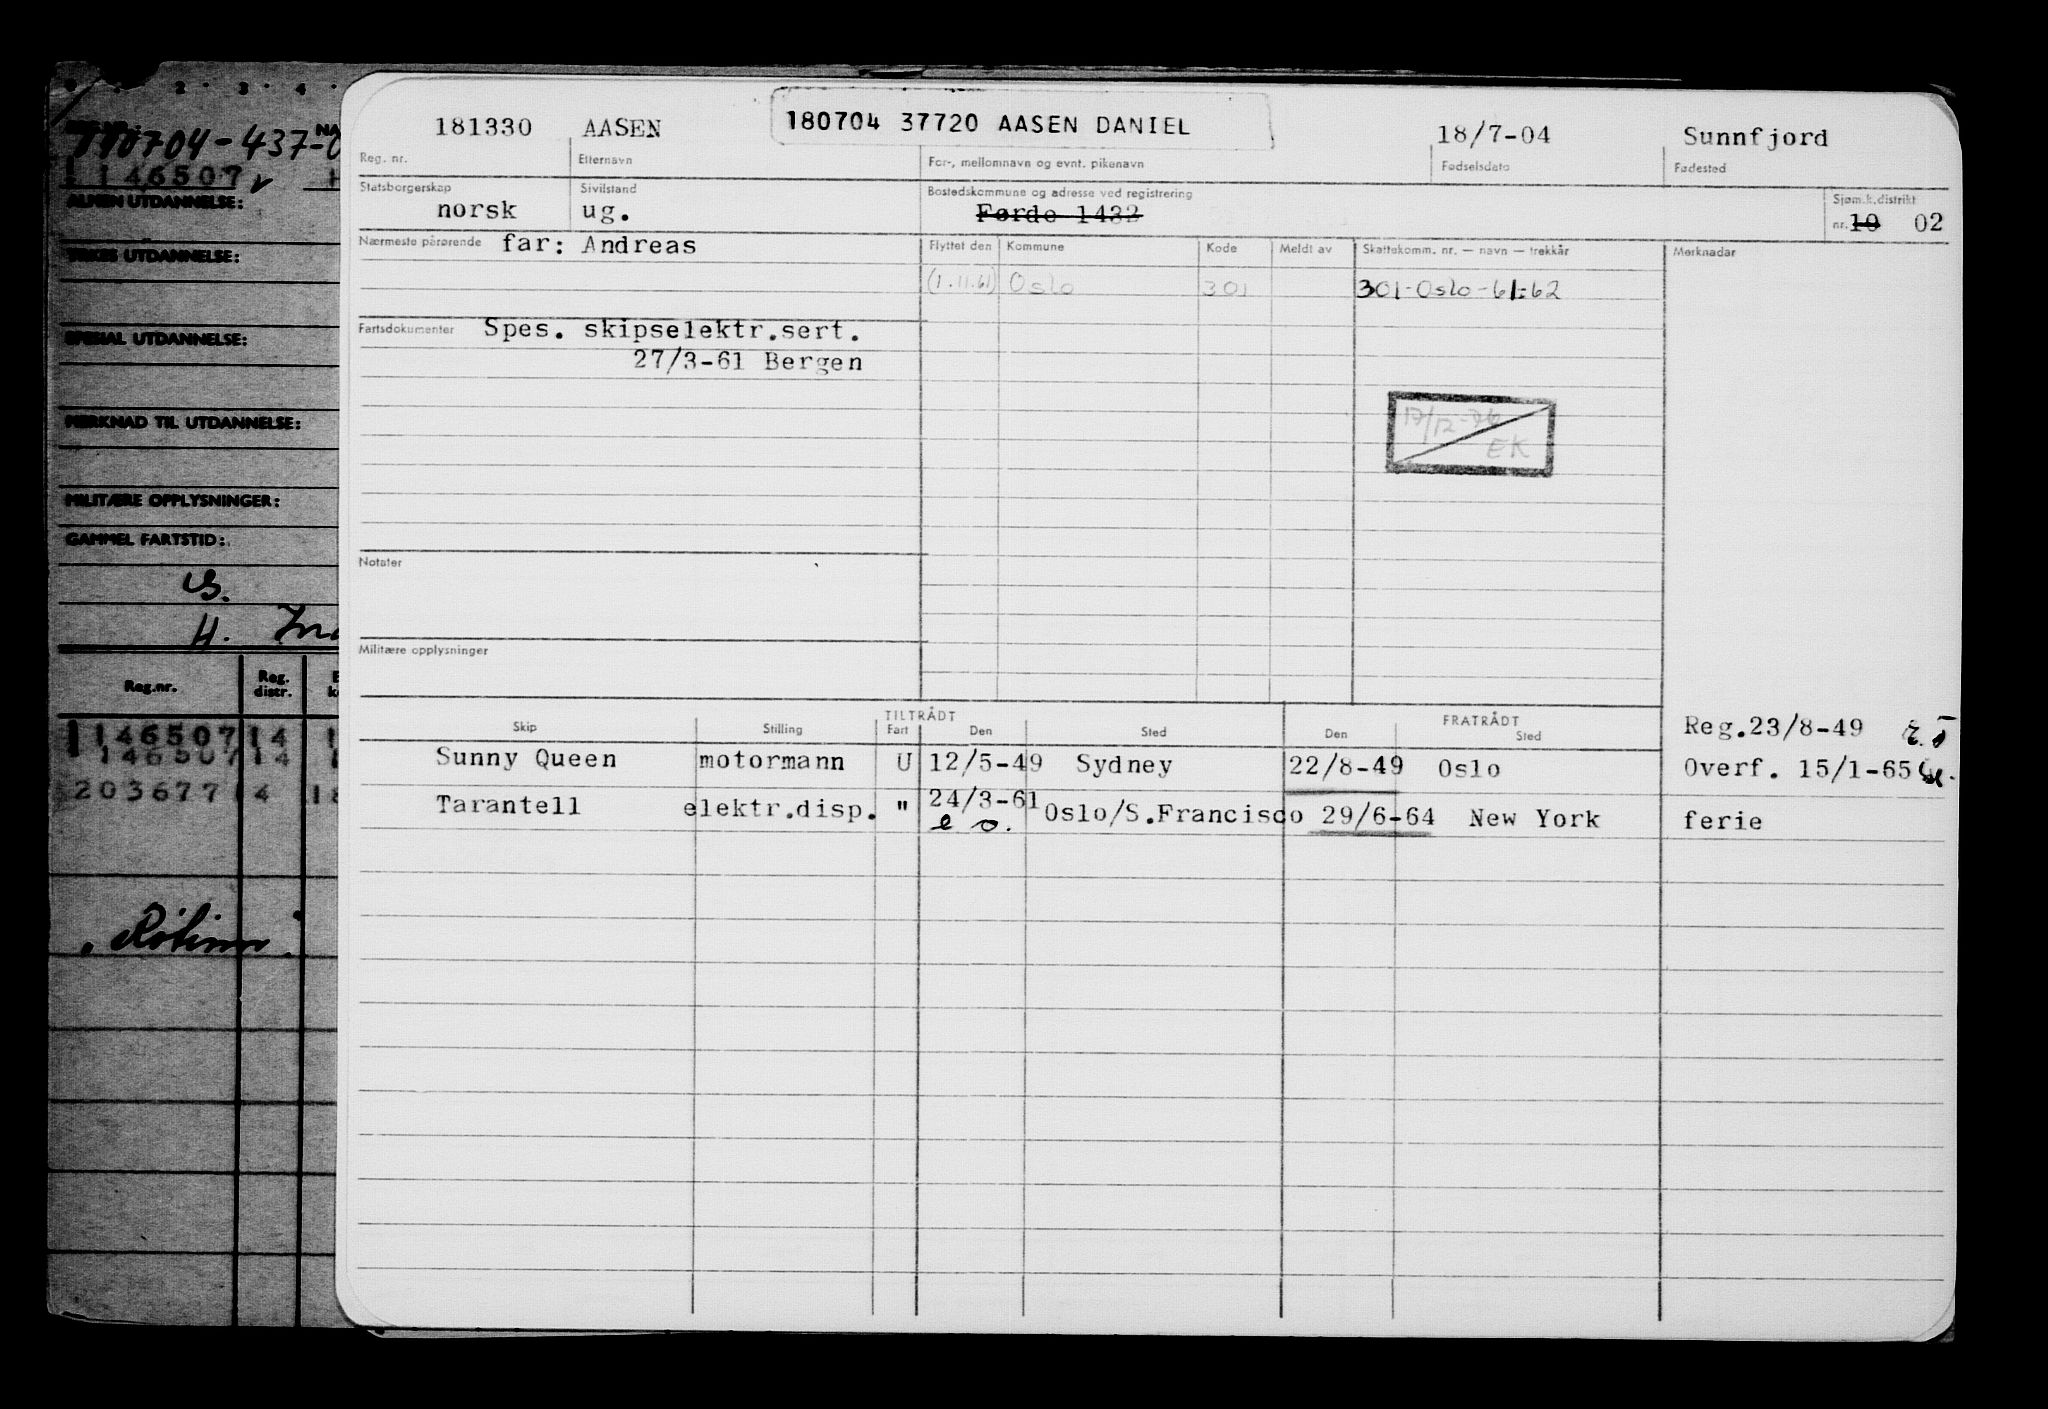 181330 AASEN 180704 37720 AASEN DANIEL 18/7-04 Sunnfjord
Reg. nr. Etternavn For-, mellomnavn og evnt. pikenavn Fødselsdato Fødested
Statsborgerskap Sivilstand Bostedskommune og adresse ved registrering Sjøm.k.distrikt
norsk ug. Førde 1432 nr. 10 02
Nærmeste pårørende far: Andreas Flyttet den Kommune Kode Meldt av Skattekomm. nr. — navn — trekkår Merknader
(1.11.61) Oslo 301 301-Oslo-61-62
Fartsdokumenter Spes. skipselektr.sert.
27/3-61 Bergen
EK
Notater
Militære opplysninger
TILTRÅDT FRATRÅDT
Skip Stilling Fart Den Sted Den Sted
Reg.23/8-49
Sunny Queen motormann U 12/5-49 Sydney 22/8-49 Oslo Overf. 15/1-65
Tarantell elektr.disp. " 24/3-61 Oslo/S.Francisco 29/6-64 New York ferie
e o.
2 3 4
180704-437
146507
ALMEN UTDANNELSE:
YRKES UTDANNELSE:
SPESIAL UTDANNELSE:
MERKNAD TIL UTDANNELSE:
MILITÆRE OPPLYSNINGER:
GAMMEL FARTSTID:
H.
Reg.nr. Reg. distr.
146507 14
146507 14
203677 4